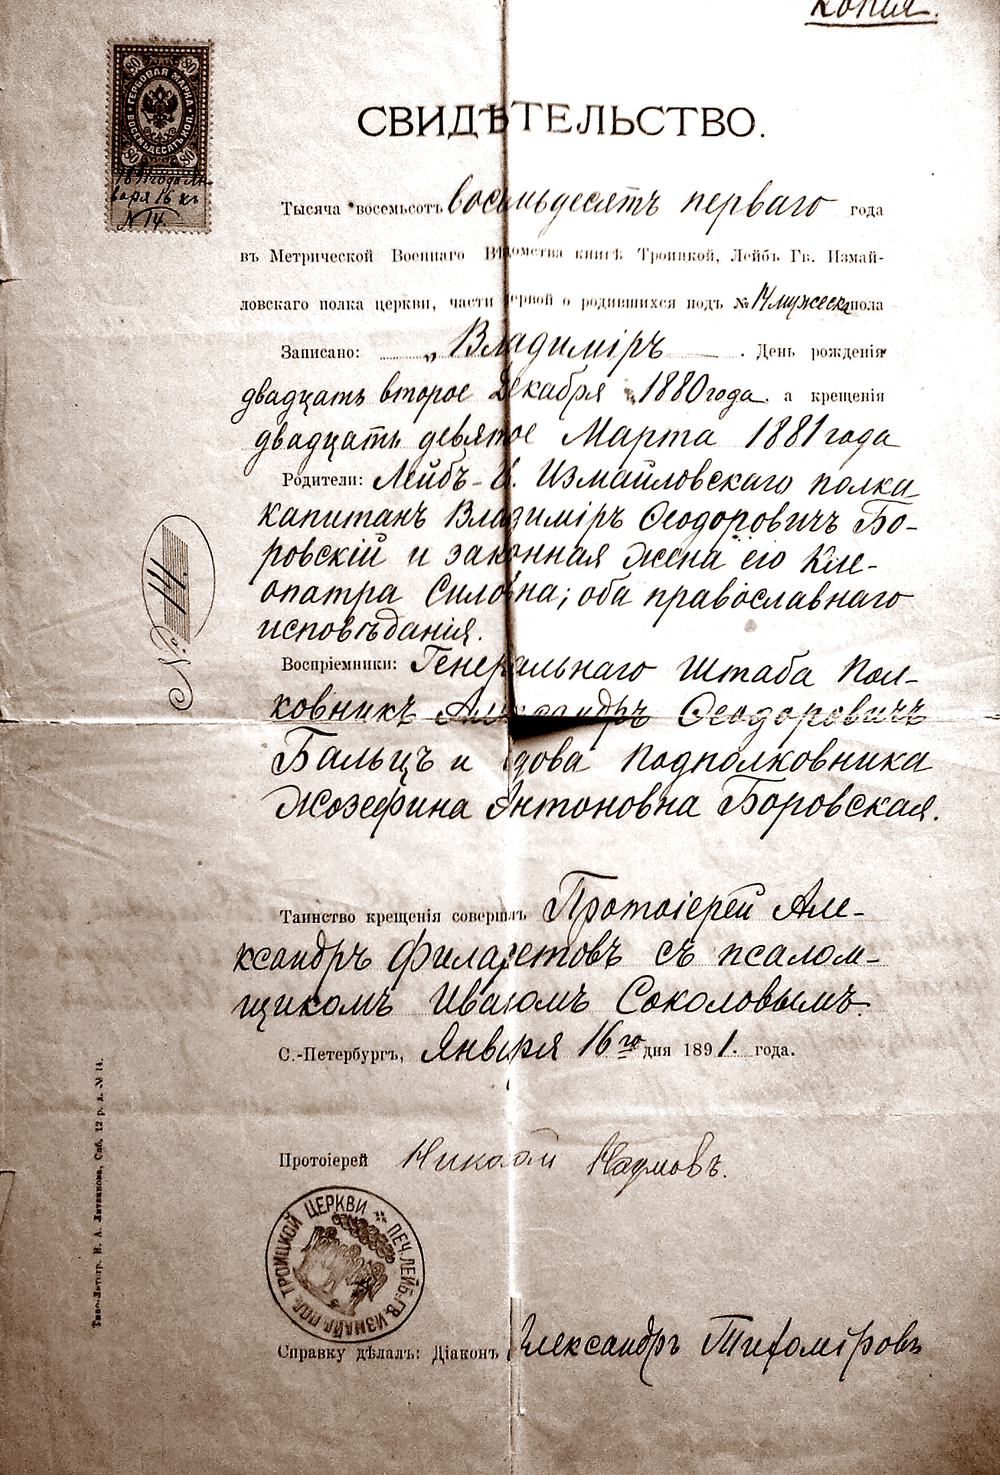 Копия.
80 80
ГЕРБОВАЯ МАРКА
ВОСЕМЬДЕСЯТЪ КОП.
80 80
1891 года Ян-
варя 16 къ
№ 14.
СВИДѢТЕЛЬСТВО.
Тысяча восемьсотъ восемьдесятъ перваго года
въ Метрической Военнаго Вѣдомства книгѣ Троицкой, Лейбъ Гв. Измай-
ловскаго полка церкви, части первой о родившихся подъ № 14 мужеска пола
Записано: „Владиміръ . День рожденія
двадцать второе Декабря 1880 года. а крещенія
двадцать девятое Марта 1881 года
Родители: Лейбъ-Гв. Измайловскаго полка
капитанъ Владиміръ Ѳеодоровичъ Бо-
ровскій и законная жена его Клe-
опатра Силовна; оба православнаго
исповѣданія.
Воспріемники: Генеральнаго Штаба Пол-
ковникъ Александръ Ѳеодоровичъ
Бальцъ и вдова Подполковника
Жозефина Антоновна Боровская.
Таинство крещенія совершилъ Протоіерей Але-
ксандръ Филаретовъ съ псалом-
щикомъ Иваномъ Соколовымъ.
С.-Петербургъ, Января 16го дня 1891. года.
№ 14.
Протоіерей Николай Наумовъ.
ПЕЧ. ЛЕЙБ. ГВ. ИЗМАЙЛ. ПОЛ. ТРОИЦКОЙ ЦЕРКВИ
Справку дѣлалъ: Діаконъ Александръ Тихоміровъ
Типо-Литогр. И. А. Литвинова, Спб. 12 р. д. № 14.